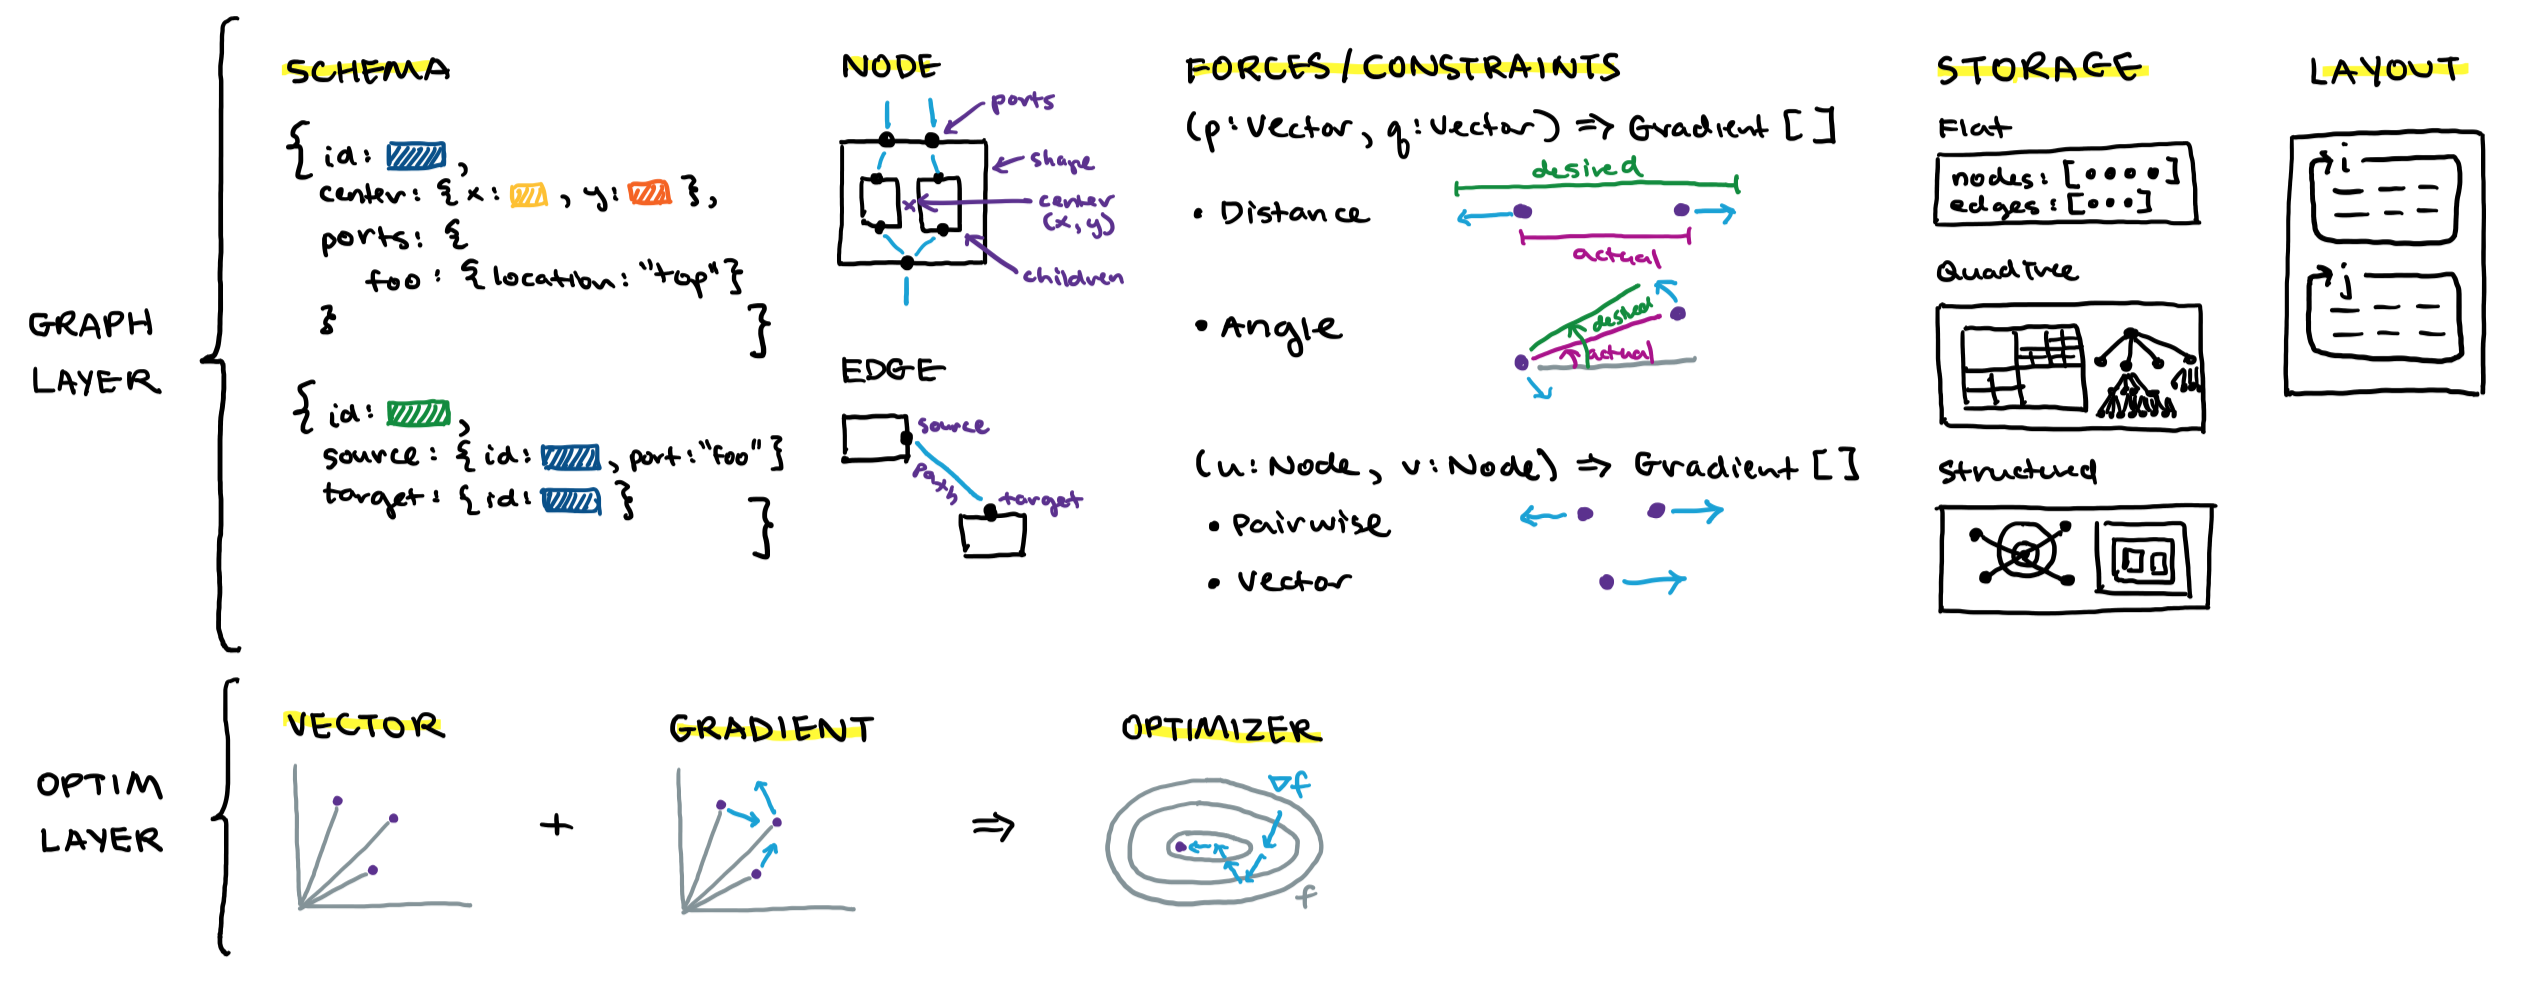 GRAPH
LAYER
SCHEMA
{ id: ,
center: { x: , y: },
ports: {
foo : { location: "top" }
}
}
{ id: ,
source: { id: , port: "foo" }
target: { id: }
}
NODE
ports
shape
center
(x,y)
children
EDGE
source
path
target
FORCES/CONSTRAINTS
(p: Vector, q: Vector) => Gradient []
• Distance
desired
actual
• Angle
desired
actual
(u: Node, v: Node) => Gradient []
• Pairwise
• Vector
STORAGE
Flat
nodes: [••••]
edges: [•••]
Quadtree
Structured
LAYOUT
i
j
OPTIM
LAYER
VECTOR
+
GRADIENT
=>
OPTIMIZER
∇f
f